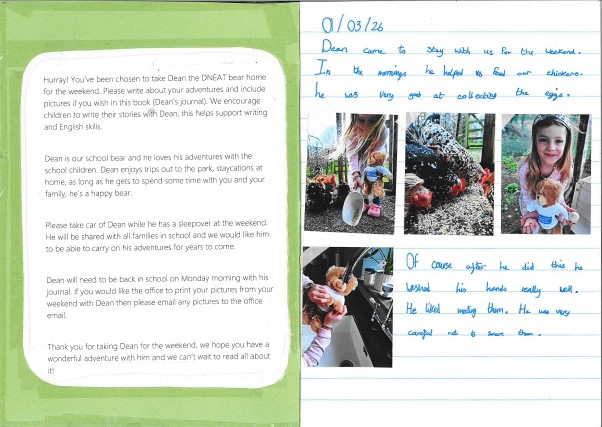 Hurray! You've been chosen to take Dean the DNEAT bear home
for the weekend. Please write about your adventures and include
pictures if you wish in this book (Dean's journal). We encourage
children to write their stories with Dean, this helps support writing
and English skills.
Dean is our school bear and he loves his adventures with the
school children. Dean enjoys trips out to the park, staycations at
home, as long as he gets to spend some time with you and your
family, he's a happy bear.
Please take car of Dean while he has a sleepover at the weekend.
He will be shared with all families in school and we would like him
to be able to carry on his adventures for years to come.
Dean will need to be back in school on Monday morning with his
journal. If you would like the office to print your pictures from your
weekend with Dean then please email any pictures to the office
email.
Thank you for taking Dean for the weekend, we hope you have a
wonderful adventure with him and we can't wait to read all about
it!
01/03/26
Dean came to stay with us for the weekend.
In the mornings he helped us feed our chickens.
he was very good at collecting the eggs.
Of cause after he did this he
washed his hands really well.
He liked meeting them. He was very
careful not to scare them.